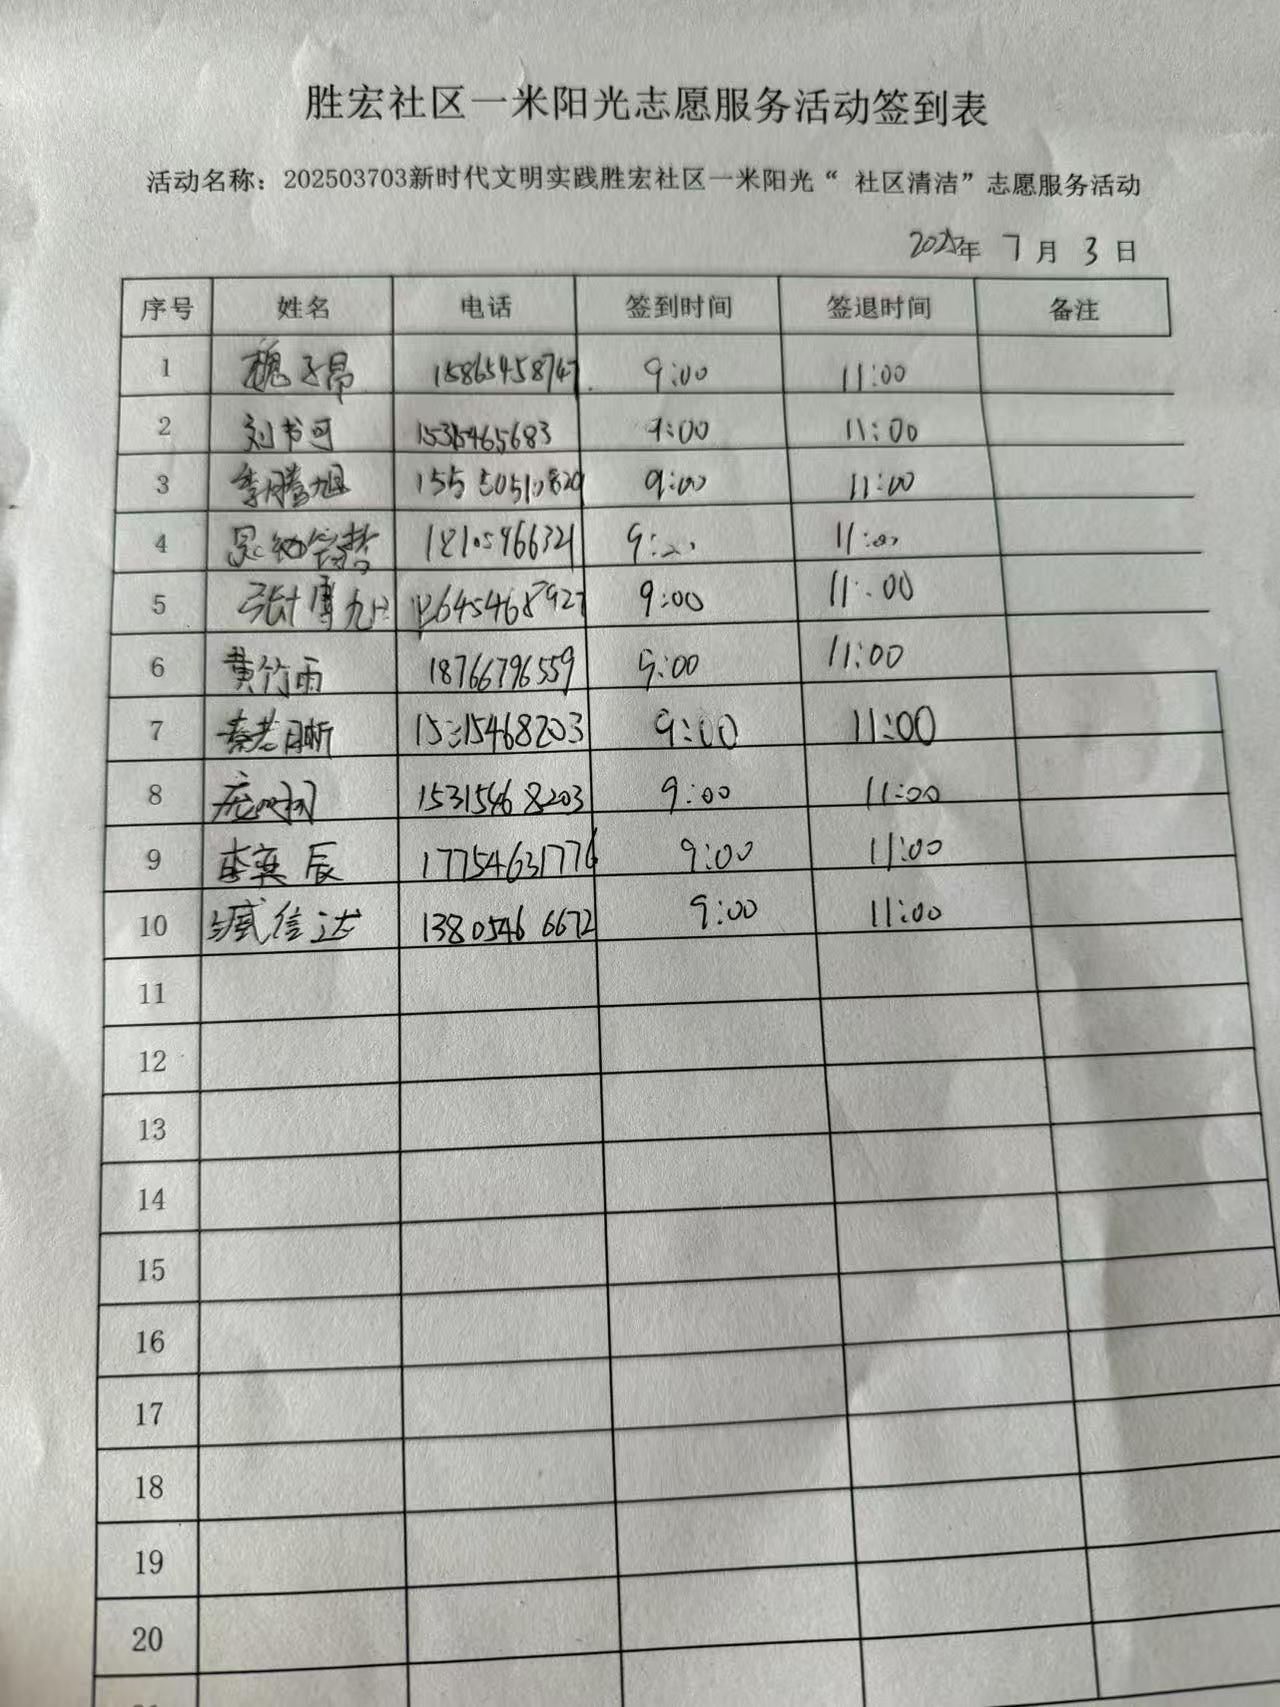 胜宏社区一米阳光志愿服务活动签到表
活动名称：202503703新时代文明实践胜宏社区一米阳光“ 社区清洁”志愿服务活动
2025年 7 月 3 日
序号 姓名 电话 签到时间 签退时间 备注
1 魏子昂 15865458747 9:00 11:00
2 刘书可 15315465683 9:00 11:00
3 李腾旭 155 50510820 9:00 11:00
4 18105466321 11:00
5 张博九 9:00 11:00
6 黄竹雨 18766796559 9:00 11:00
7 15315468203 9:00 11:00
8 15315468203 9:00 11:00
9 李奕辰 17754631776 9:00 11:00
10 臧信达 1380546 6672 9:00 11:00
11
12
13
14
15
16
17
18
19
20